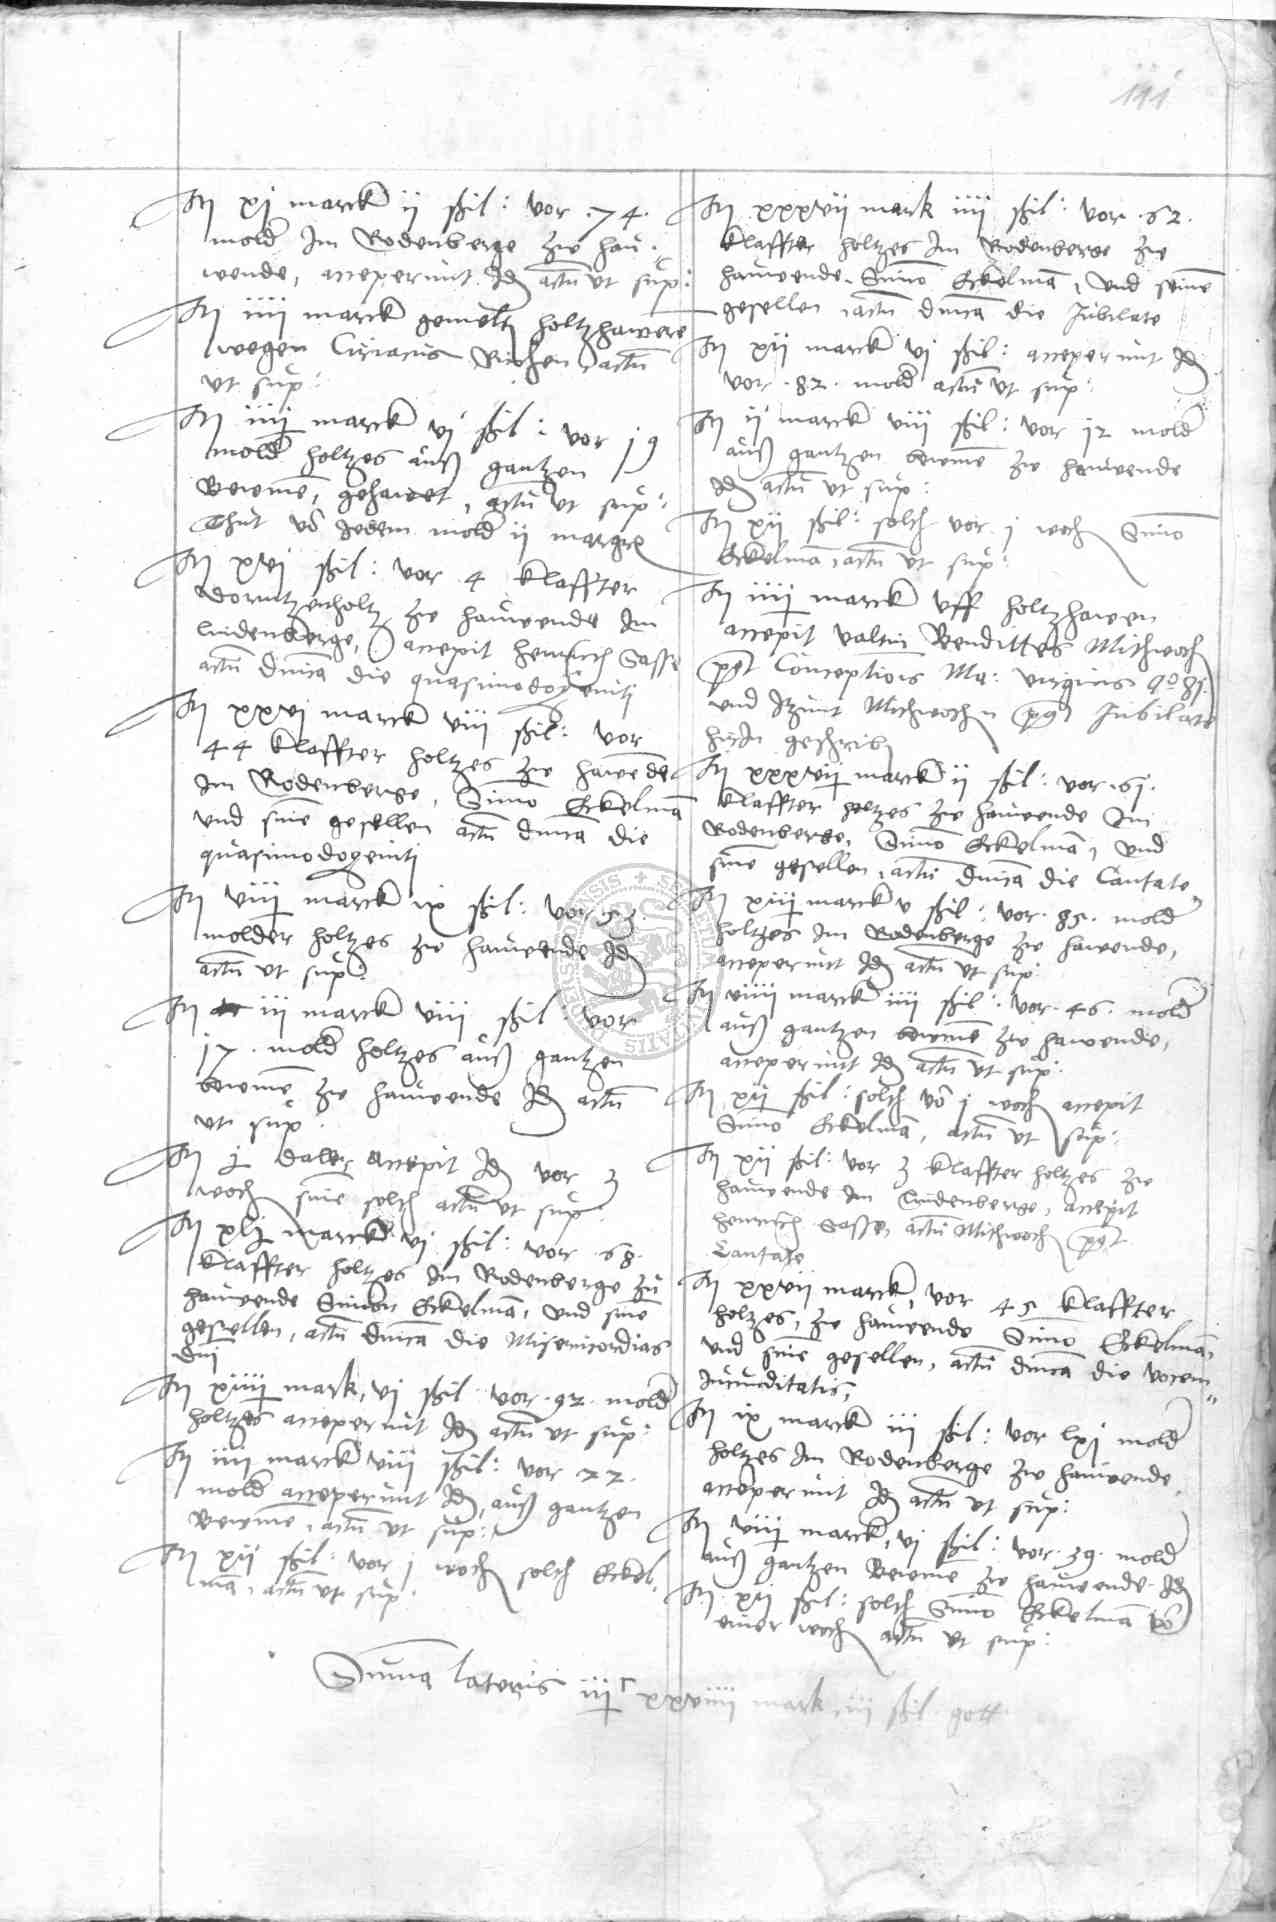 111
It xj marck ii ßßil: vor .74.
mold Im Rodenberge zw hau-
wende, acceperunt Id actu ut sup:
It iiii marck gemelt holtzhawere
wegen Ciriacus actu
ut sup:
It iiij marck vj ßßil: vor 19
mold holtzes auß gantzen
Bewme, gehawet, actu ut sup:
Thut vo Iedem mold ii
It xvj ßßil: vor 4 klaffter
zw hauwende Im
lindenberge, accepit Henrich Sasse
actu dnica die quasimodogeniti
It xxvj marck viii ßßil: vor
44 klaffter holtzes zw hawende
Im Rodenberge, Simo Eckelma
vnd sine gesellen actu dnica die
quasimodogeniti
It viij marck ix ßßil: vor 53
molder holtzes zw hauwende Id
actu ut sup:
It iii marck viii ßßil: vor
17. mold holtzes auß gantzen
bewme zw hauwende Id actu
ut sup:
It j daler accepit Id vor 3
woch sine solth actu ut sup:
It xlj marck vj ßßil: vor .68.
klaffter holtzes Im Rodenberge zu
hauwende Simon Eckelma, vnd sine
gesellen, actu dnica die Misericordias
dni
It xiiij mark, vj ßßil: vor .92. mold
holtzes acceperunt Id actu ut sup:
It iiii marck viii ßßil: vor .22.
mold acceperunt Id, auß gantzen
Bewme, actu ut sup:
It xii ßßil: vor j woch solth Eckel-
ma, actu ut sup:
It xxxvii mark iiii ßßil: vor .62.
klaffter holtzes Im Rodenberge zw
hauwende. Simo Eckelma, vnd seine
gesellen, actu dnica die Jubilate
It xii marck vj ßßil: acceperunt Id
vor .82. mold actu ut sup:
It ii marck viii ßßil: vor 12 mold
auß gantzen bewme zw hauwende
Id actu ut sup:
It xii ßßil: solth vor j woch Simo
Eckelma, actu ut sup:
It iiij marck vff holtzhawen
accepit valtin Bendittes Mithwoch
pst Conceptiois Ma: virginis ao 81.
vnd Itzunt Mithwochn post Jubilate
hirIn geschrib
It xxxvij marck ii ßßil: vor .61.
klaffter holtzes zw hauwende Im
Rodenberge, Simo Eckelma, vnd
sine gesellen, actu dnica die Cantate
It xiij marck v ßßil: vor .85. mold
holtzes Im Rodenberge zw hawende,
acceperunt Id actu ut sup:
It viiij marck iiii ßßil: vor .46. mold
auß gantzen bewme zw hawende,
acceperunt Id actu ut sup:
It xij ßßil: solth vor j woch accepit
Simo Eckelma, actu ut sup:
It xii ßßil: vor 3 klaffter holtzes zw
hauwende Im lindenberge, accepit
Henrich Sasse, actu Mithwoch pst
Cantate
It xxvii marck, vor 45 klaffter
holtzes, zw hauwende Simo Eckelma,
vnd sine gesellen, actu dnica die vocem
Jucunditatis,
It ix marck iii ßßil: vor lxj mold
holtzes Im Rodenberge zw hauwende,
acceperunt Id actu ut sup:
It viij marck, vj ßßil: vor .39. mold
auß gantzen Bewme zw hauwende Id
It xii ßßil: solth Simo Eckelma vor
einer woch actu ut sup:
Suma lateris iijc xxviiii mark iiii ßßil gott